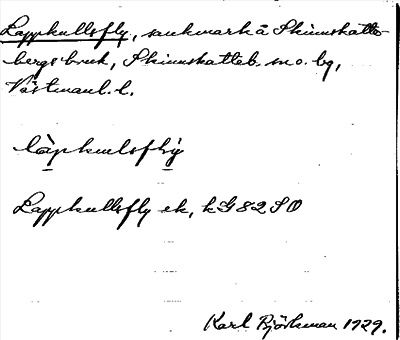 Lappkullsfly, sankmark å Skinnskatte-
bergs bruk, Skinnskatteb. sn o. bg,
Västmanl. l.
làpkulsflỳ
Lappkullsfly ek, kG 82 SO
Karl Björkman 1929.